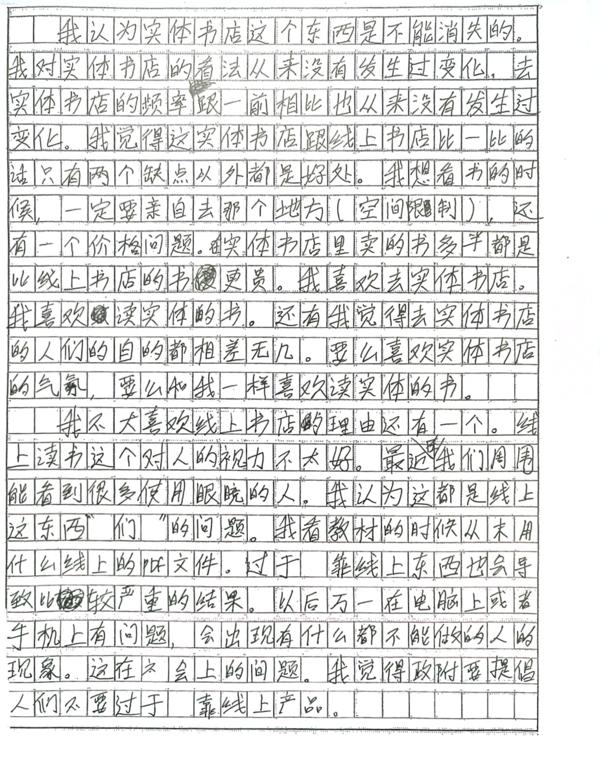 我认为实体书店这个东西是不能消失的。
我对实体书店的看法从来没有发生过变化，去
实体书店的频率跟一前相比也从来没有发生过
变化。我觉得这实体书店跟线上书店比一比的
话只有两个缺点以外都是好处。我想看书的时
候，一定要亲自去那个地方（空间限制），还
有一个价格问题。实体书店里卖的书多半都是
比线上书店的书更贵。我喜欢去实体书店。
我喜欢读实体的书。还有我觉得去实体书店
的人们的目的都相差无几。要么喜欢实体书店
的气氛，要么和我一样喜欢读实体的书。
我不大喜欢线上书店的理由还有一个。线
上读书这个对人的视力不太好。最近我们周围
能看到很多使用眼晚的人。我认为这都是线上
这东西“们”的问题。我看教材的时候从未用
什么线上的pdf文件。过于 靠线上东西也会导
致比较严重的结果。以后万一在电脑上或者
手机上有问题，会出现有什么都不能做的人的
现象。这在不会上的问题。我觉得政附要提倡
人们不要过于 靠线上产品。